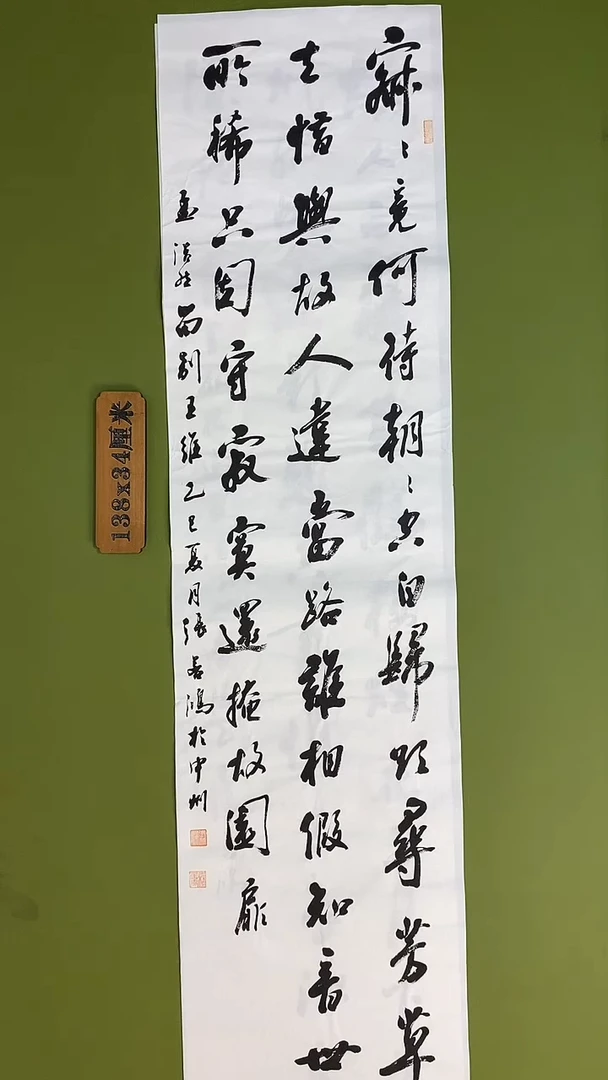 寂〻竟何待朝〻空自歸欲尋芳草
去惜與故人違當路誰相假知音世
所稀只固守寂寞還掩故園扉
孟浩然留別王維乙巳夏月張鴻於中州
138x34厘米